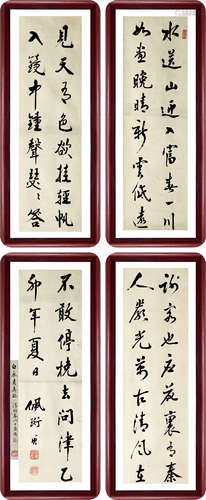 水送山迎入富春一川
如畫晚晴新雲低遠
見天色欲挂輕帆
入鏡中鐘聲瑟瑟答
謝客也應花裏有秦
人嚴光萬古清風在
不敢停橈去問津乙
卯年夏日 佩珩